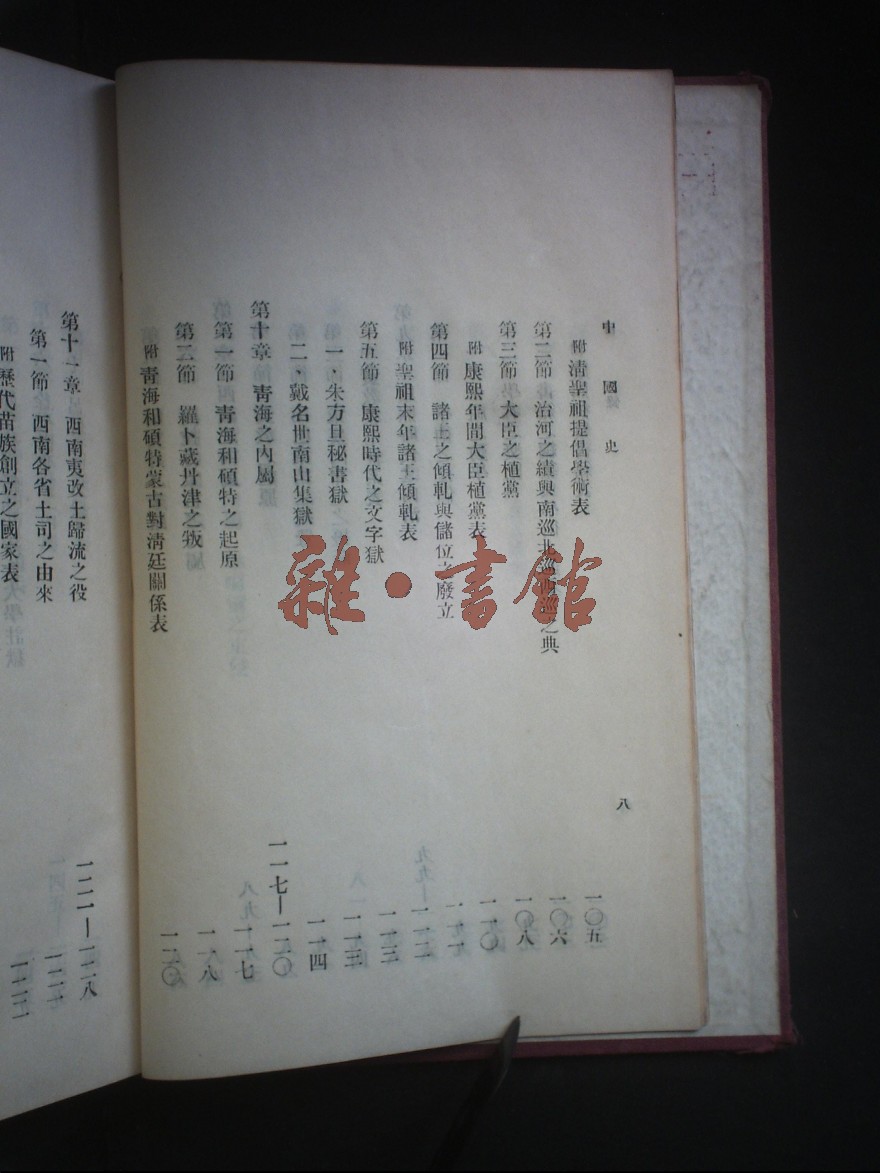 中國史
八
附 清聖祖提倡學術表 一〇五
第二節 治河之績與南巡北巡西巡之典 一〇六
第三節 大臣之植黨 一〇八
附 康熙年間大臣植黨表 一一〇
第四節 諸王之傾軋與儲位之廢立 一一一
附 聖祖末年諸王傾軋表 一一二
第五節 康熙時代之文字獄 一一三
一、朱方旦秘書獄 一一三
二、戴名世南山集獄 一一四
第十章 青海之內屬 一一七—一二〇
第一節 青海和碩特之起原 一一七
第二節 羅卜藏丹津之叛 一一八
附 青海和碩特蒙古對清廷關係表 一二〇
第十一章 西南夷改土歸流之役 一二一—一二八
第一節 西南各省土司之由來 一二一
附 歷代苗族創立之國家表 一二二
雜·書館